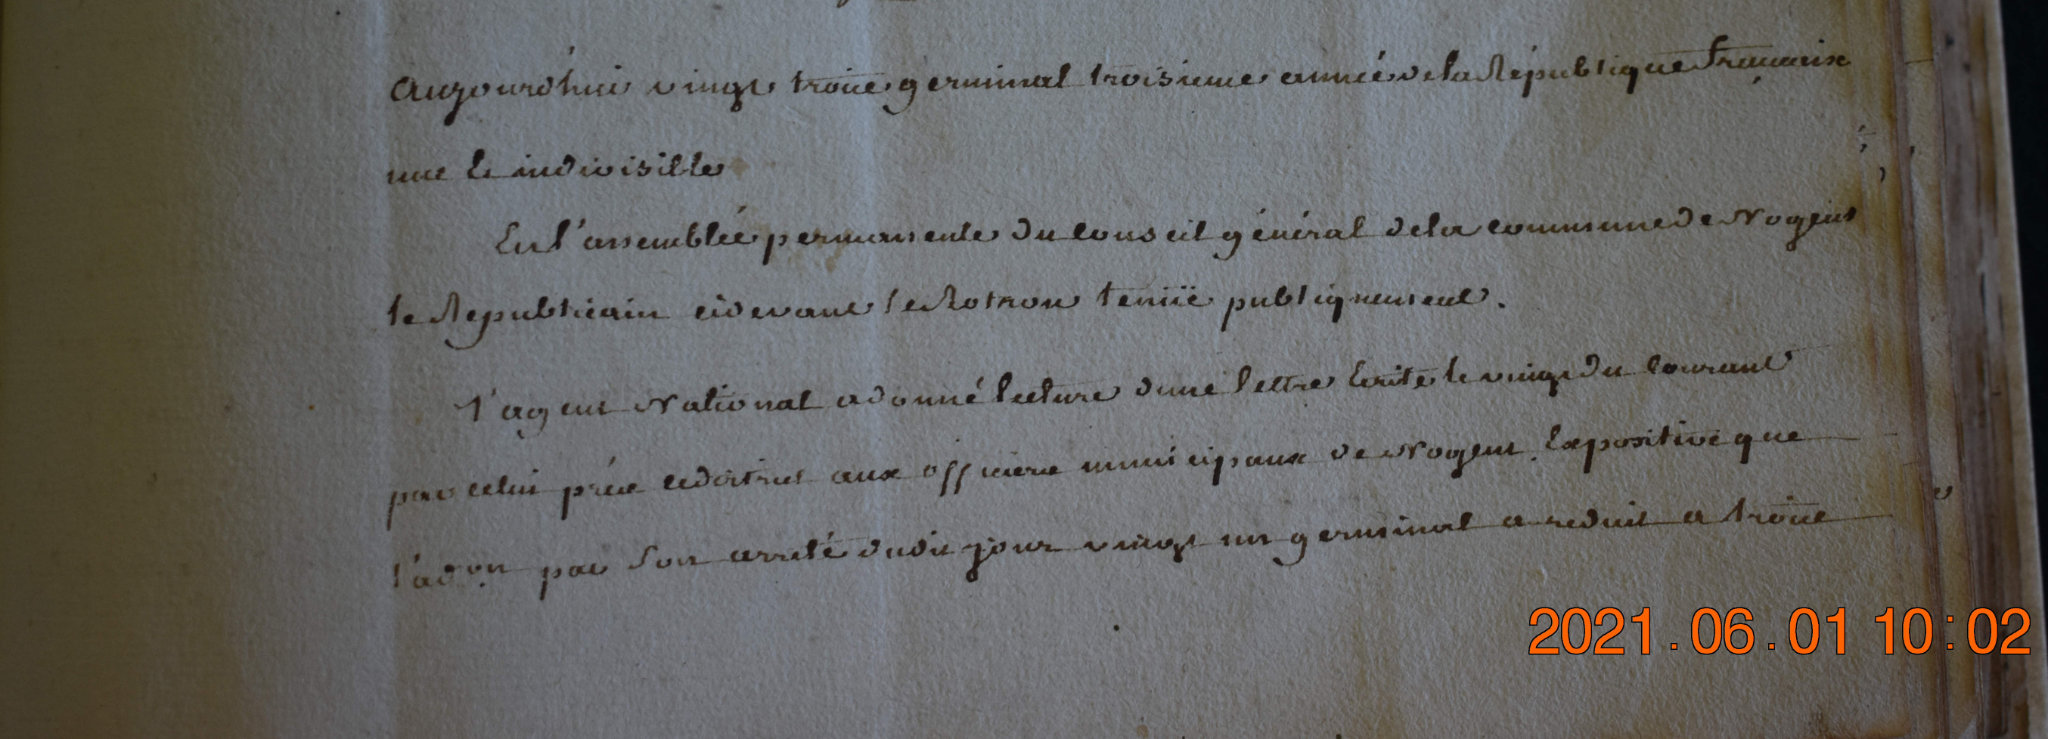 Aujourd'hui vingt trois germinal troisieme année de la République française
une et indivisible
En l'assemblée permanente du Conseil général de la commune de Nogent
le Républicain cidevant le Rotrou tenüe publiquement.
l'agent National a donné lecture d'une lettre Ecrite le vingt du Courant
par celui près le district aux officiers municipaux de Nogent, Expositive que
l'adon par son arreté dudit jour vingt un germinal a reduit a trois
2021.06.01 10:02